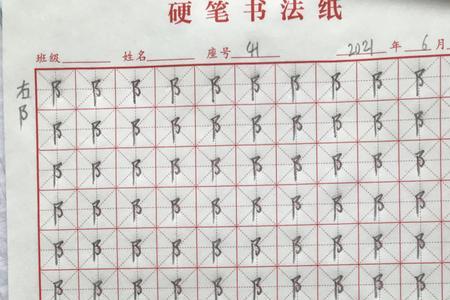 硬笔书法纸
班级 姓名 座号 41 2021 年 6 月
右阝 阝 阝 阝 阝 阝 阝 阝 阝 阝 阝 阝
阝 阝 阝 阝 阝 阝 阝 阝 阝 阝 阝
阝 阝 阝 阝 阝 阝 阝 阝 阝 阝 阝
阝 阝 阝 阝 阝 阝 阝 阝 阝 阝 阝
阝 阝 阝 阝 阝 阝 阝 阝 阝 阝 阝
阝 阝 阝 阝 阝 阝 阝 阝 阝 阝 阝